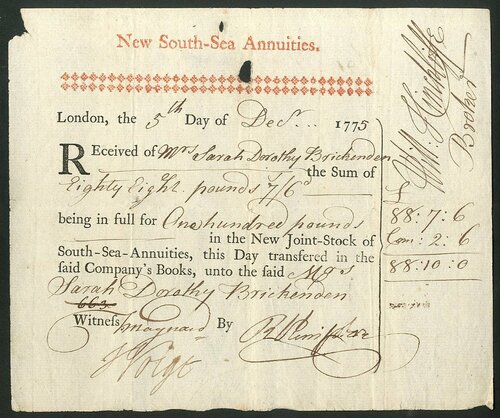 New South-Sea Annuities.
London, the 5th Day of Decr. 1775
Received of Mrs Sarah Dorothy Brickenden
the Sum of
Eighty Eight pounds 7/6d
being in full for One hundred pounds
in the New Joint-Stock of
South-Sea-Annuities, this Day transfered in the
said Company's Books, unto the said Mrs
Sarah Dorothy Brickenden
663
Witness By
Broker
£
88:7:6
Com: 2:6
88:10:0